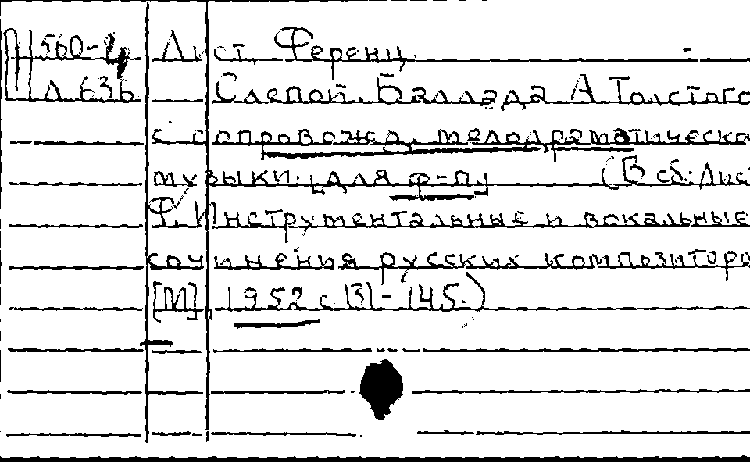 П 560-4 Лист, Ференц.
Л 636 Слепой. Баллада А. Толстого
с сопровожд. мелодраматическо
музыки. [для ф-пу (В сб: Лис
Ф. Инструментальные и вокальные
сочинения русских композиторо
[М], 1952 с 131-145.)